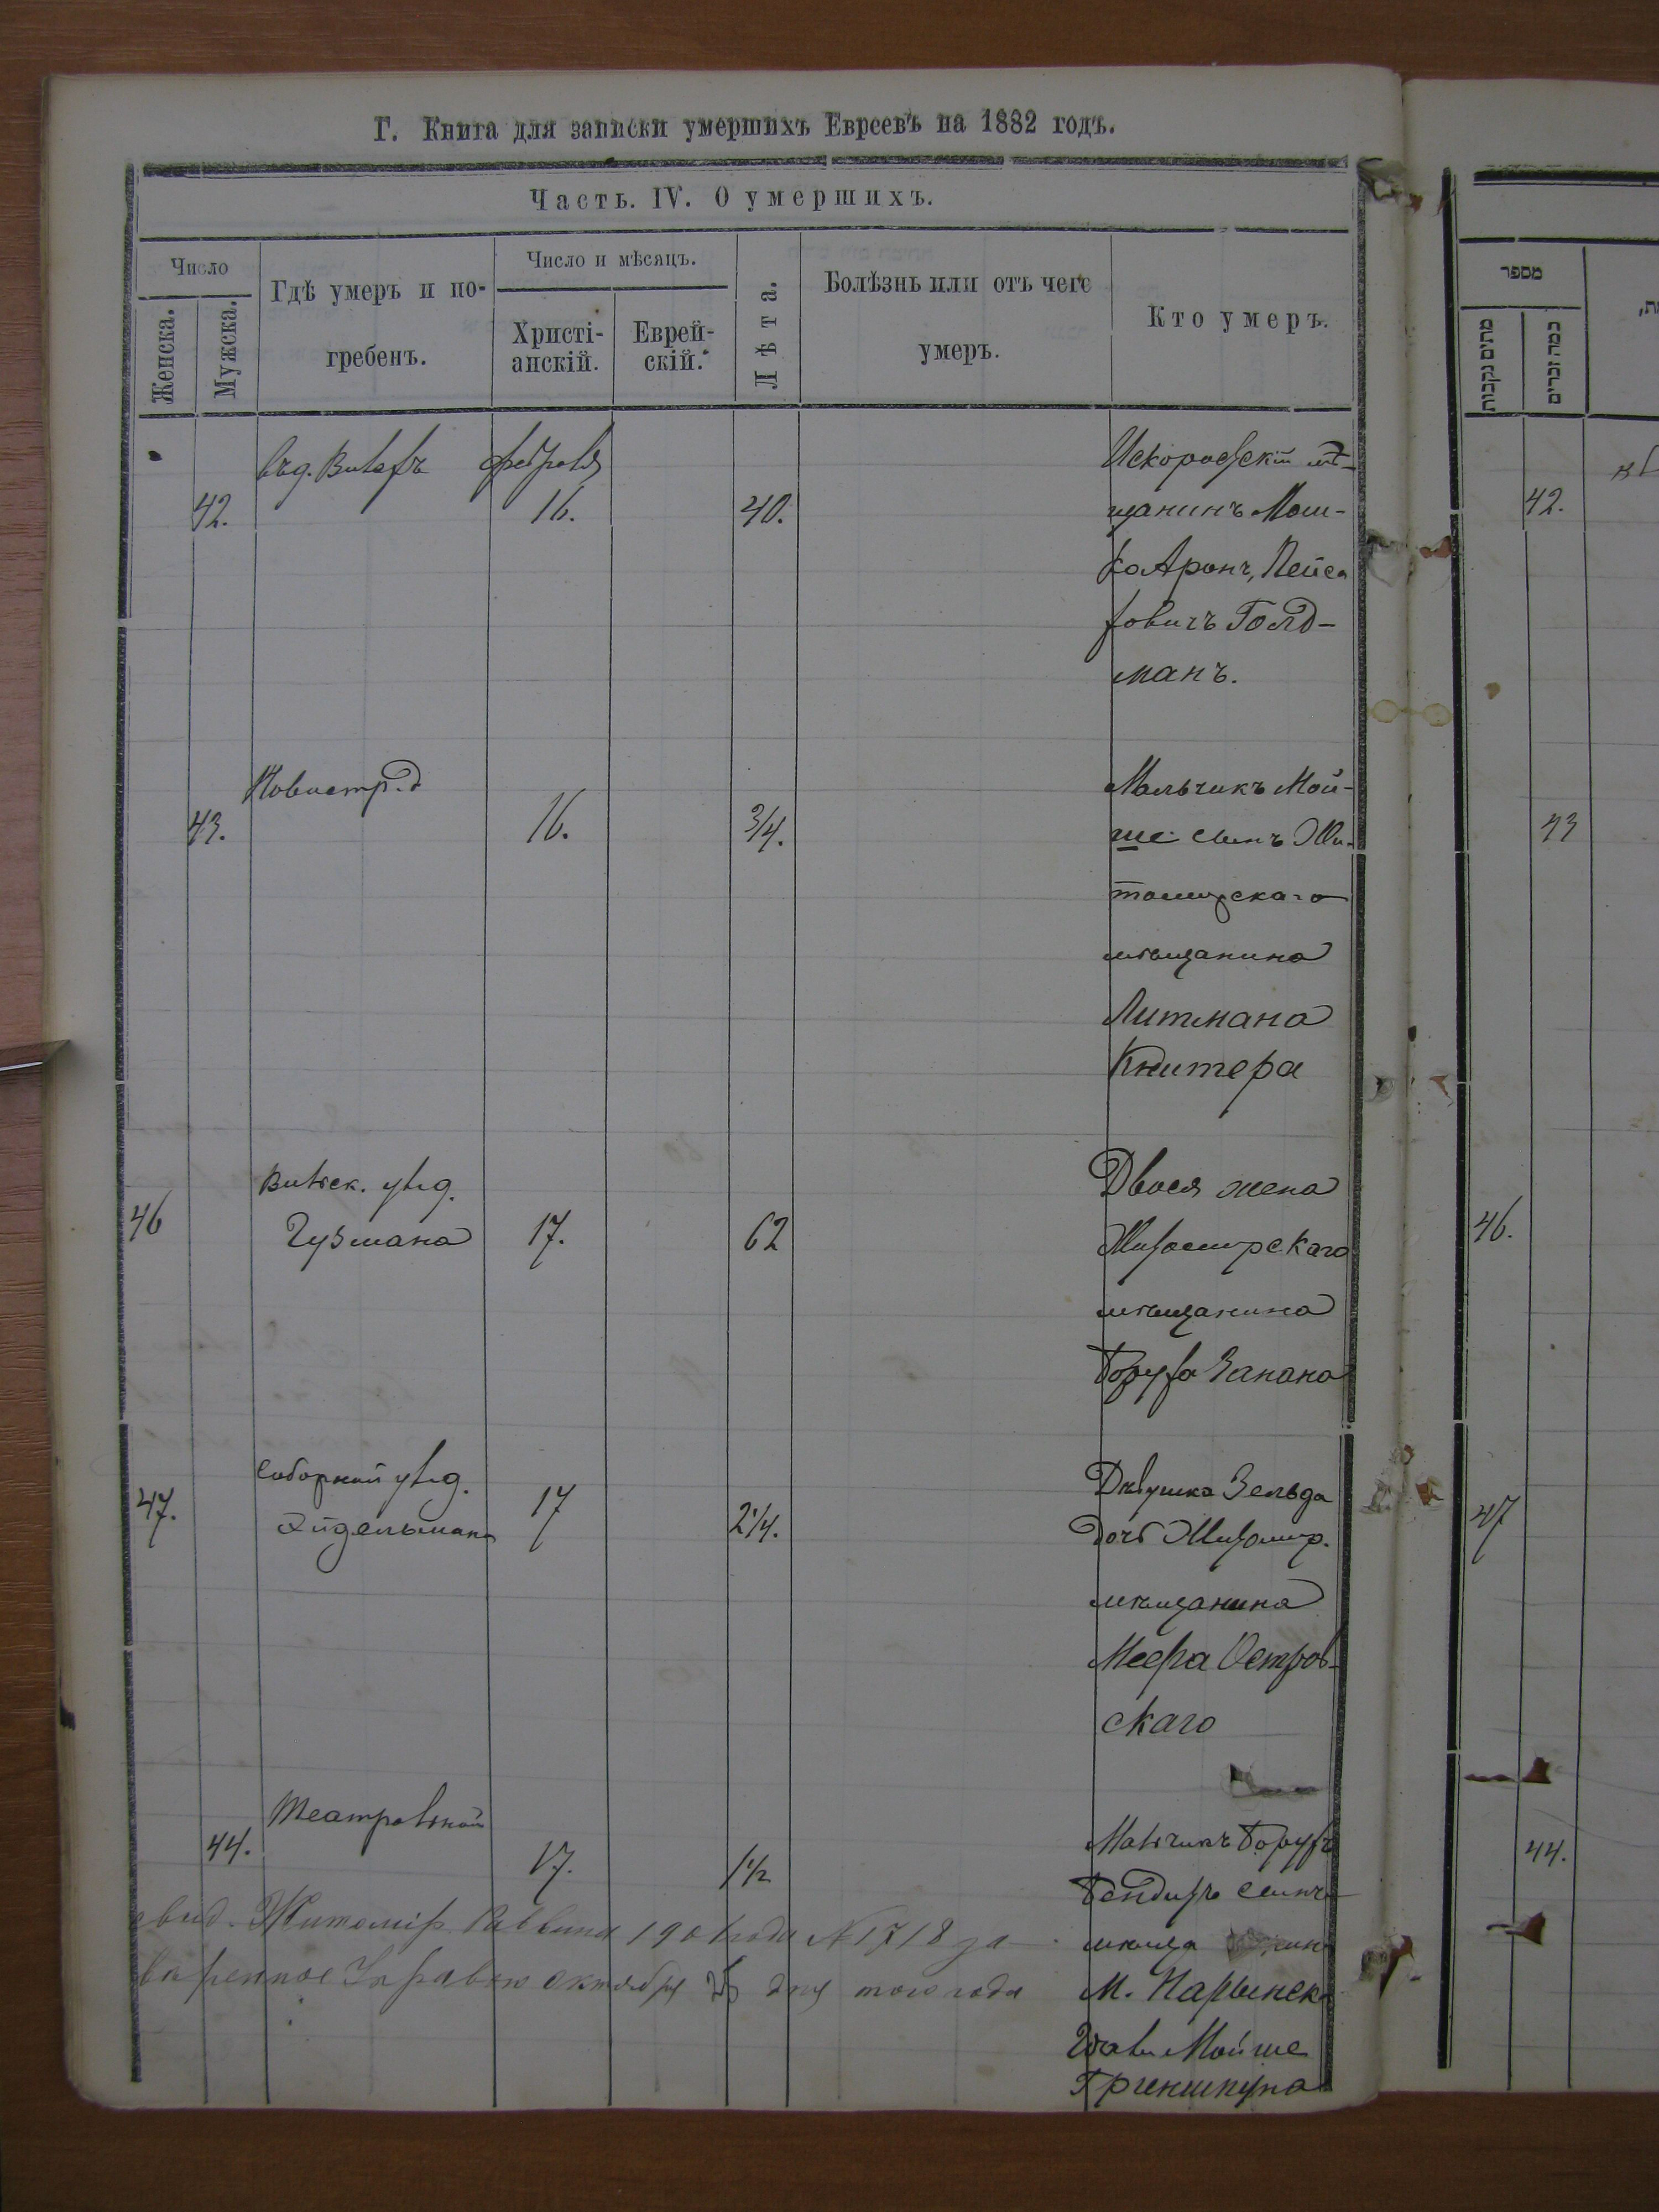 Г. Книга для записки умершихъ Евреевъ на 1882 годъ.
Часть. IV. О умершихъ.
Число
Женска.
Мужска.
Гдѣ умеръ и по-
гребенъ.
Число и мѣсяцъ.
Христі-
анскій.
Еврей-
скій.
Лѣта.
Болѣзнь или отъ чего
умеръ.
Кто умеръ.
מספר
מתים נקבות
כמה זכרים
42.
февраля
16.
40.
Искоростскій мѣ-
щанинъ Мош-
ко Аронъ, Пейса
ховичъ Голд-
манъ.
42.
43.
Новостр. д
16.
3/4.
Мальчикъ Мой-
ше сынъ Жи-
томирскаго
мѣщанина
Литмана
Книтера
43
46
Вильск. ул. д.
Гузмана
17.
62
Двося жена
Житомирскаго
мѣщанина
Боруха Занана
46.
47.
Соборной ул. д.
Эйдельмана
17
2 1/4.
Дѣвушка Зельда
дочь Житомир.
мѣщанина
Меера Остров-
скаго
47
44.
Театральной
17.
1 1/2
Мальчикъ Борухъ
Бендитъ сынъ
М.
Мойше
Гриншпуна
44.
свид. Житомір. Раввина 1901 года № 1718 за
октября 25 дня того года